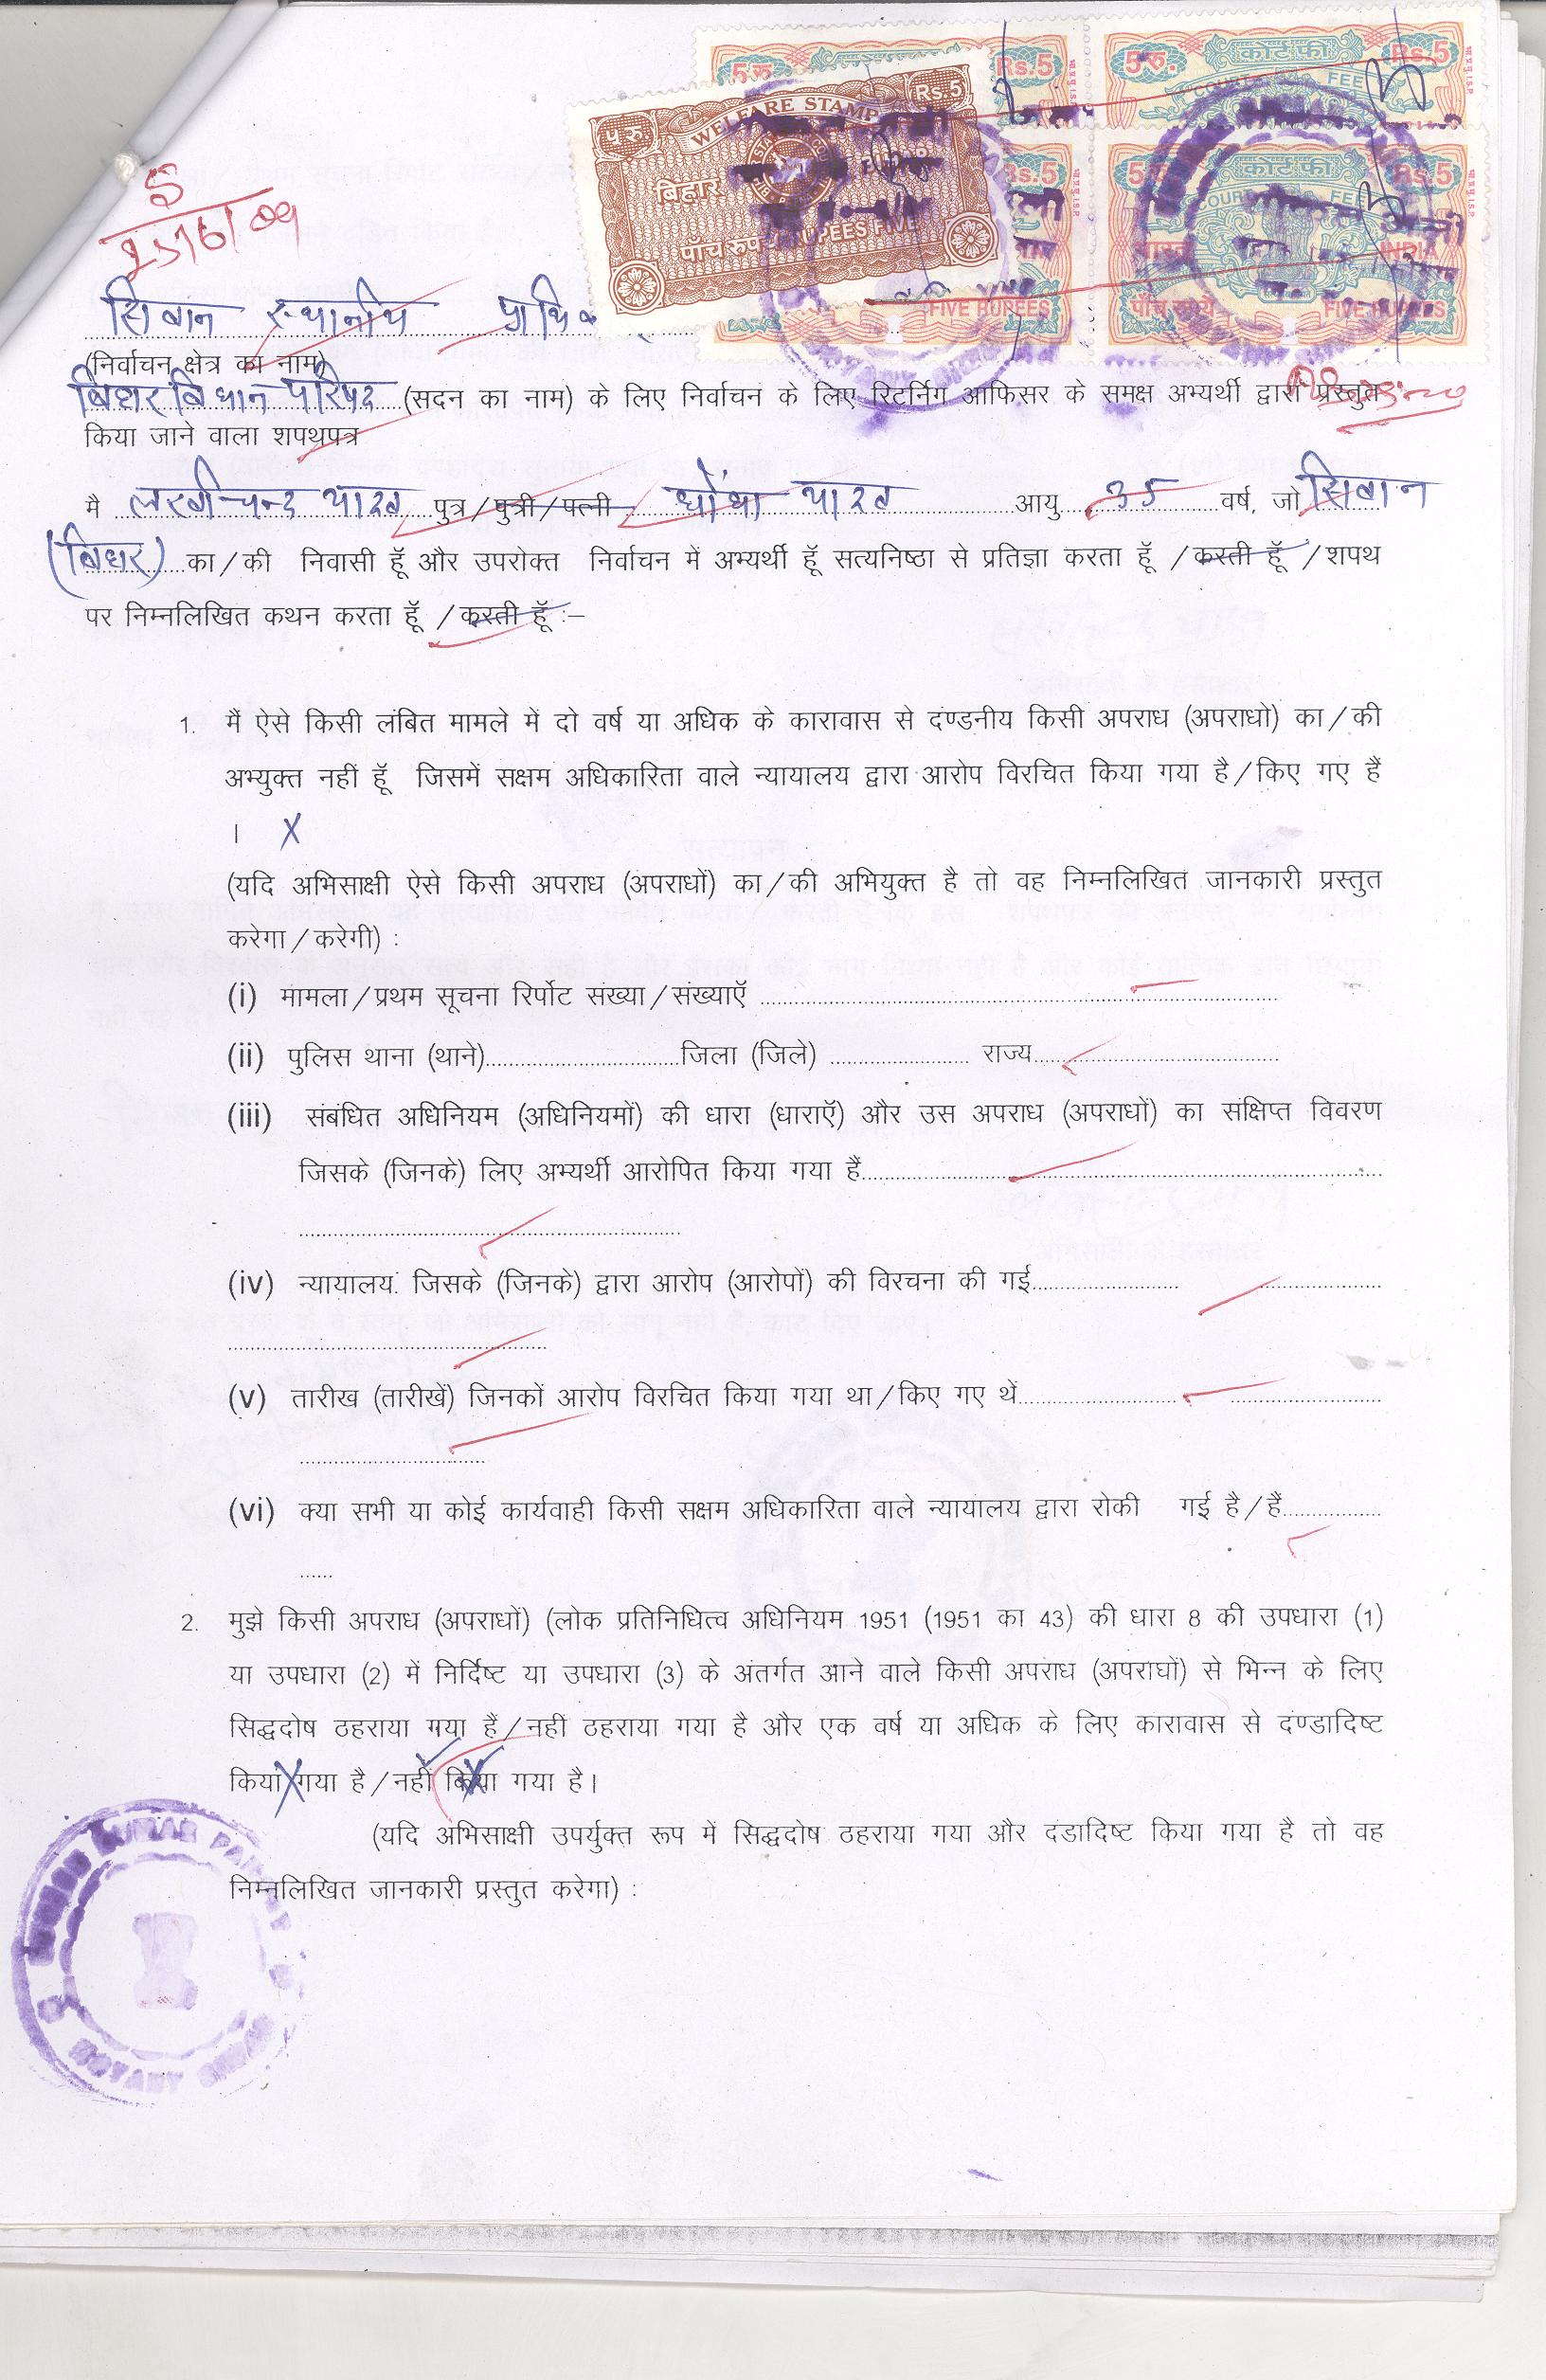 5रु. Rs.5
5रु. कोर्ट फी Rs.5
COURT FEE
Rs.5
प.रु. WELFARE STAMP Rs.5
बिहार
पाँच रुप RUPEES FIVE
Rs.5
FIVE RUPEES
कोर्ट फी Rs.5
COURT FEE
भारत INDIA
पाँच रुपये FIVE RUPEES
5
25/6/09
सिवान स्थानीय प्राधिक
(निर्वाचन क्षेत्र का नाम)
बिहार विधान परिषद (सदन का नाम) के लिए निर्वाचन के लिए रिटर्निग आफिसर के समक्ष अभ्यर्थी द्वारा प्रस्तुत
किया जाने वाला शपथपत्र
मै लक्ष्मीचन्द यादव पुत्र/पुत्री/पत्नी घोंघा यादव आयु 35 वर्ष, जो सिवान
(बिहार) का/की निवासी हूँ और उपरोक्त निर्वाचन में अभ्यर्थी हूँ सत्यनिष्ठा से प्रतिज्ञा करता हूँ /करती हूँ /शपथ
पर निम्नलिखित कथन करता हूँ /करती हूँ :–
1. मैं ऐसे किसी लंबित मामले में दो वर्ष या अधिक के कारावास से दण्डनीय किसी अपराध (अपराधो) का/की
अभ्युक्त नहीं हूँ जिसमें सक्षम अधिकारिता वाले न्यायालय द्वारा आरोप विरचित किया गया है/किए गए हैं
। X
(यदि अभिसाक्षी ऐसे किसी अपराध (अपराधों) का/की अभियुक्त है तो वह निम्नलिखित जानकारी प्रस्तुत
करेगा/करेगी) :
(i) मामला/प्रथम सूचना रिर्पोट संख्या/संख्याएँ
(ii) पुलिस थाना (थाने)..............................जिला (जिले) ...................... राज्य
(iii) संबंधित अधिनियम (अधिनियमों) की धारा (धाराएँ) और उस अपराध (अपराधों) का संक्षिप्त विवरण
जिसके (जिनके) लिए अभ्यर्थी आरोपित किया गया हैं
(iv) न्यायालय. जिसके (जिनके) द्वारा आरोप (आरोपों) की विरचना की गई
(v) तारीख (तारीखें) जिनकों आरोप विरचित किया गया था/किए गए थें
(vi) क्या सभी या कोई कार्यवाही किसी सक्षम अधिकारिता वाले न्यायालय द्वारा रोकी गई है/हैं
2. मुझे किसी अपराध (अपराधों) (लोक प्रतिनिधित्व अधिनियम 1951 (1951 का 43) की धारा 8 की उपधारा (1)
या उपधारा (2) में निर्दिष्ट या उपधारा (3) के अंतर्गत आने वाले किसी अपराध (अपराघों) से भिन्न के लिए
सिद्धदोष ठहराया गया हैं/नहीं ठहराया गया है और एक वर्ष या अधिक के लिए कारावास से दण्डादिष्ट
किया गया है/नहीं किया गया है।
(यदि अभिसाक्षी उपर्युक्त रूप में सिद्धदोष ठहराया गया और दंडादिष्ट किया गया है तो वह
निम्नलिखित जानकारी प्रस्तुत करेगा) :
KUMAR
NOTARY